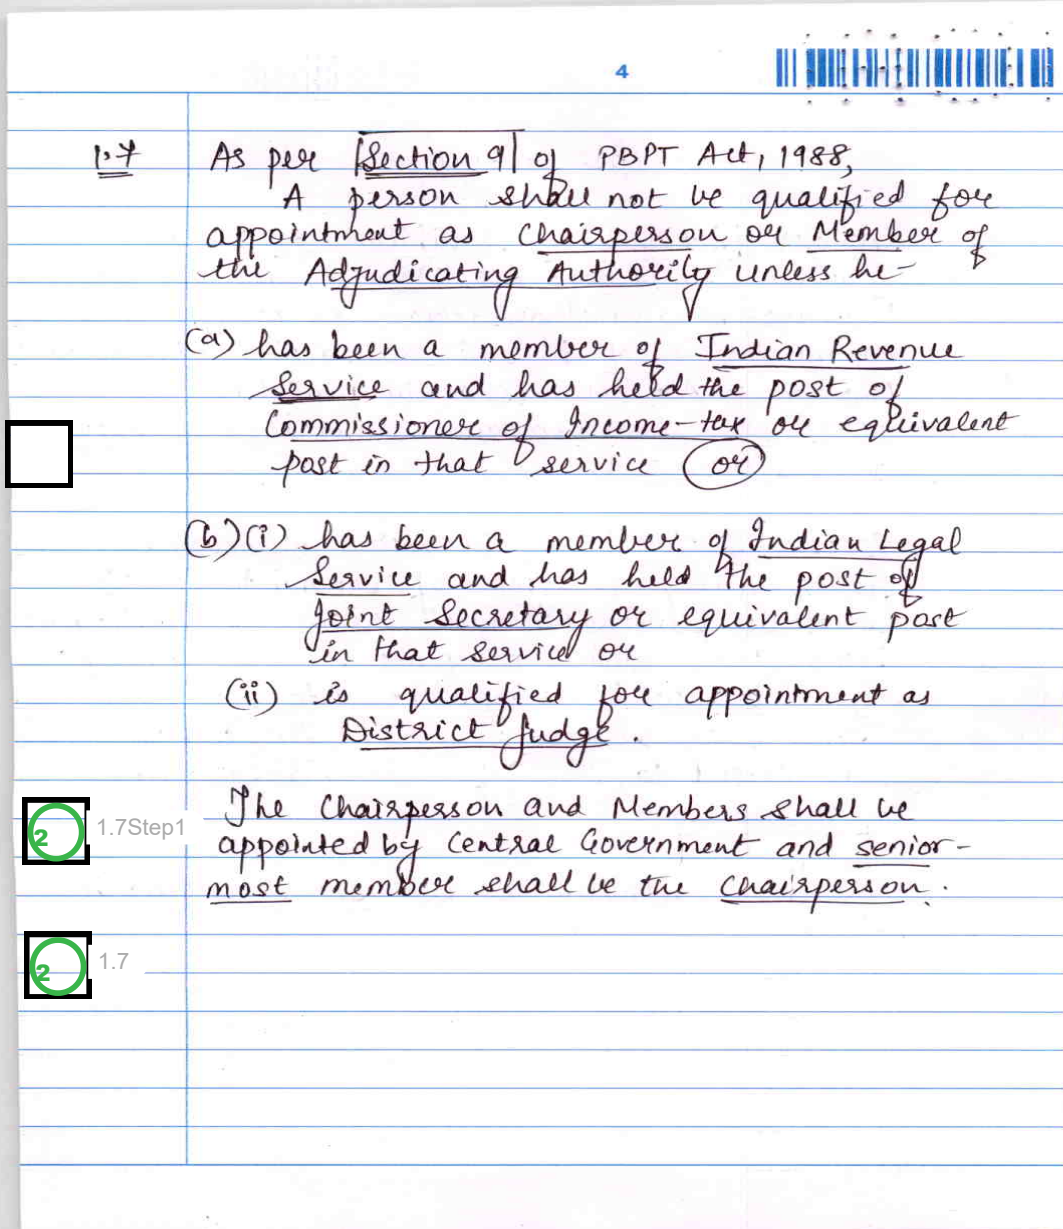 4
1.7 As per Section 9 of PBPT Act, 1988,
A person shall not be qualified for
appointment as Chairperson or Member of
the Adjudicating Authority unless he-
(a) has been a member of Indian Revenue
Service and has held the post of
Commissioner of Income-tax or equivalent
post in that service or
(b)(i) has been a member of Indian Legal
Service and has held the post of
Joint Secretary or equivalent post
in that service or
(ii) is qualified for appointment as
District Judge.
The Chairperson and Members shall be
2 1.7Step1
appointed by Central Government and senior-
most member shall be the Chairperson.
2 1.7